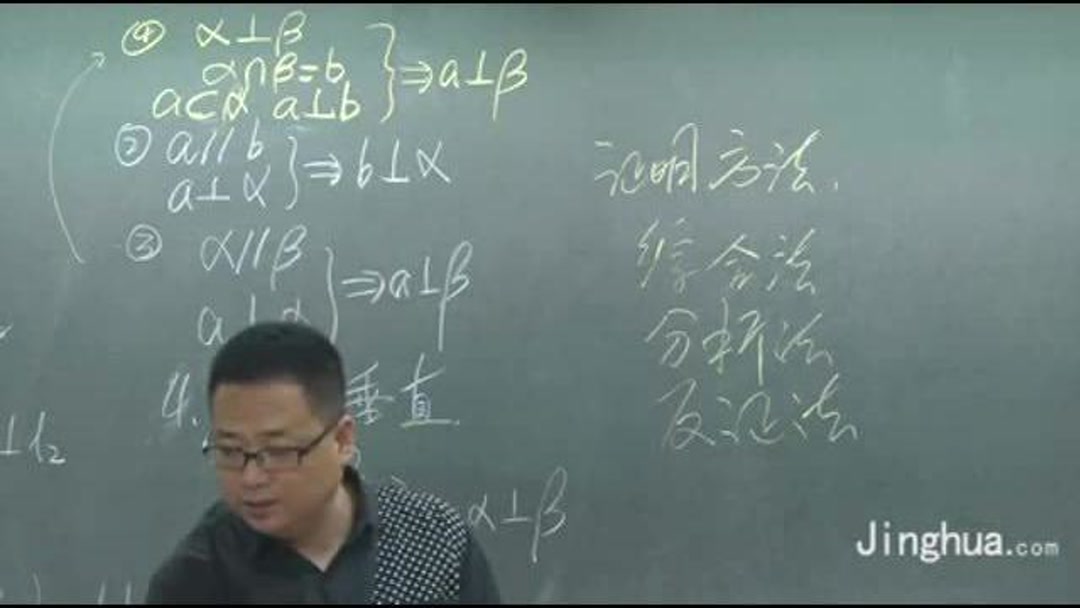 ④ α⊥β
α∩β=b
a⊂α a⊥b
} ⇒ a⊥β
② a//b
a⊥α
} ⇒ b⊥α
③ α//β
a⊥α
} ⇒ a⊥β
4. 垂直
α⊥β
⊥l₂
证明方法.
综合法
分析法
反证法
Jinghua.com